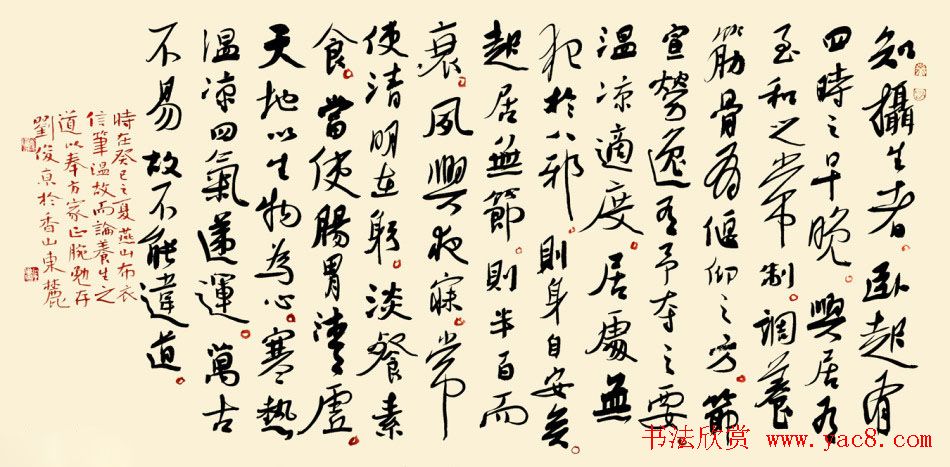 知攝生者。臥起有
四時之早晚。興居有
至和之常制。調養
筋骨有偃仰之方。節
宣勞逸有予夺之要。
溫涼適度。居處無
犯於八邪。則身自安矣。
起居無節。則半百而
衰。夙興夜寐。常
使清明在躬。淡餐素
食。當使腸胃清虛。
天地以生物為心。寒熱
溫涼四氣遞運。萬古
不易故不能違道。
時在癸巳之夏燕山布衣
信筆溫故而論養生之
道以奉方家正腕
劉俊京於香山東麓
书法欣赏 www.yac8.com